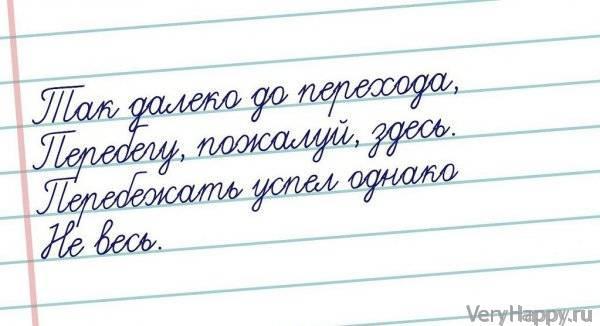 Так далеко до перехода,
Перебегу, пожалуй, здесь.
Перебежать успел однако
Не весь.
VeryHappy.ru